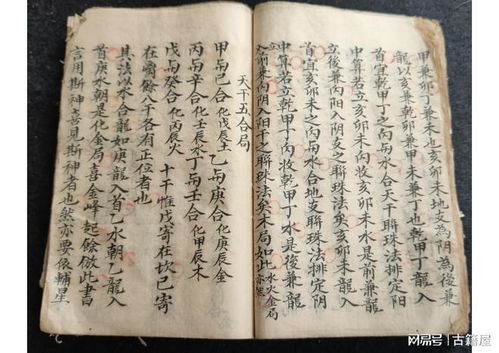 甲兼卯丁兼未也亥卯未地支為陰為後兼
龍以亥兼乾卯兼甲未兼丁也乾甲丁龍入
首宜乾甲丁之向兩水合天干聯珠法排定陽
中算若立亥卯未向收亥卯未水是前兼龍
立後兼向陽入陰之聯珠法矣亥卯未龍入
首宜立亥卯未之向兩水合地支聯珠法排定陰
中算若立乾甲丁向收乾甲丁水是後兼
立前兼向陰入陽干之聯珠法矣木局如此水火金局亦然
天干五合局
甲與己合化戊辰土 乙與庚合化庚辰金
丙與辛合化壬辰水 丁與壬合化甲辰木
戊與癸合化丙辰火 十干惟戊寄在坎己寄
在离餘八干各有正位者也
其法以水合龍如庚龍入首乙水朝乙龍入
首庚水朝是化金局喜金峰起餘倣此書
言用斯神喜見斯神者也然亦要依輔星
网易号 | 古籍屋